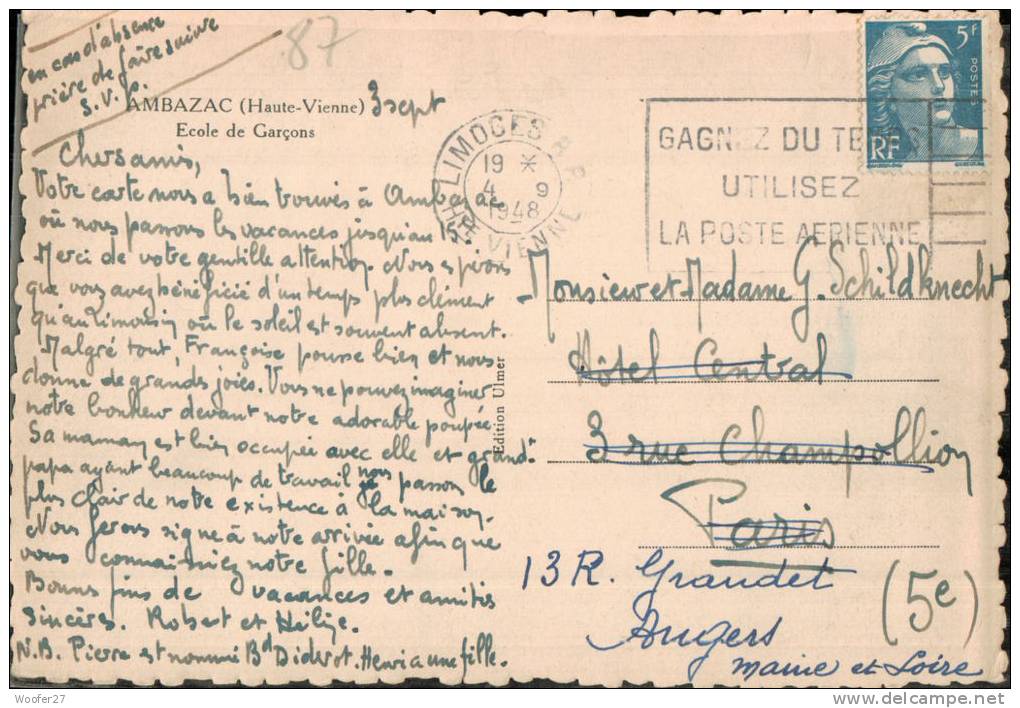 en cas d'absence
prière de faire suivre
S.V.P.
87
AMBAZAC (Haute-Vienne) 3 sept
Ecole de Garçons
Chers amis,
Votre carte nous a bien trouvés à Ambazac
où nous passons les vacances jusqu'au 15.
Merci de votre gentille attention. Nous espérons
que vous avez bénéficié d'un temps plus clément
qu'au Limousin où le soleil est souvent absent.
Malgré tout, Françoise pousse bien et nous
donne de grandes joies. Vous ne pouvez imaginer
notre bonheur devant notre adorable poupée.
Sa maman est bien occupée avec elle et grand
papa ayant beaucoup de travail nous passons le
plus clair de notre existence à la maison.
Nous ferons signe à notre arrivée afin que
vous connaissiez notre fille.
Bonnes fins de vacances et amitiés
sincères. Robert et
N.B. Pierre est nommé Bd Diderot. Henri a une fille.
Edition Ulmer
LIMOGES R.P.
19
4 9
1948
HTE VIENNE
GAGNEZ DU TEMPS
UTILISEZ
LA POSTE AERIENNE
5F
POSTES
RF
Monsieur et Madame G. Schildknecht
Hôtel Central
3 rue Champollion
Paris
(5e)
13 R. Grandet
Angers
Maine et Loire
Woofer27
http://www.delcampe.net